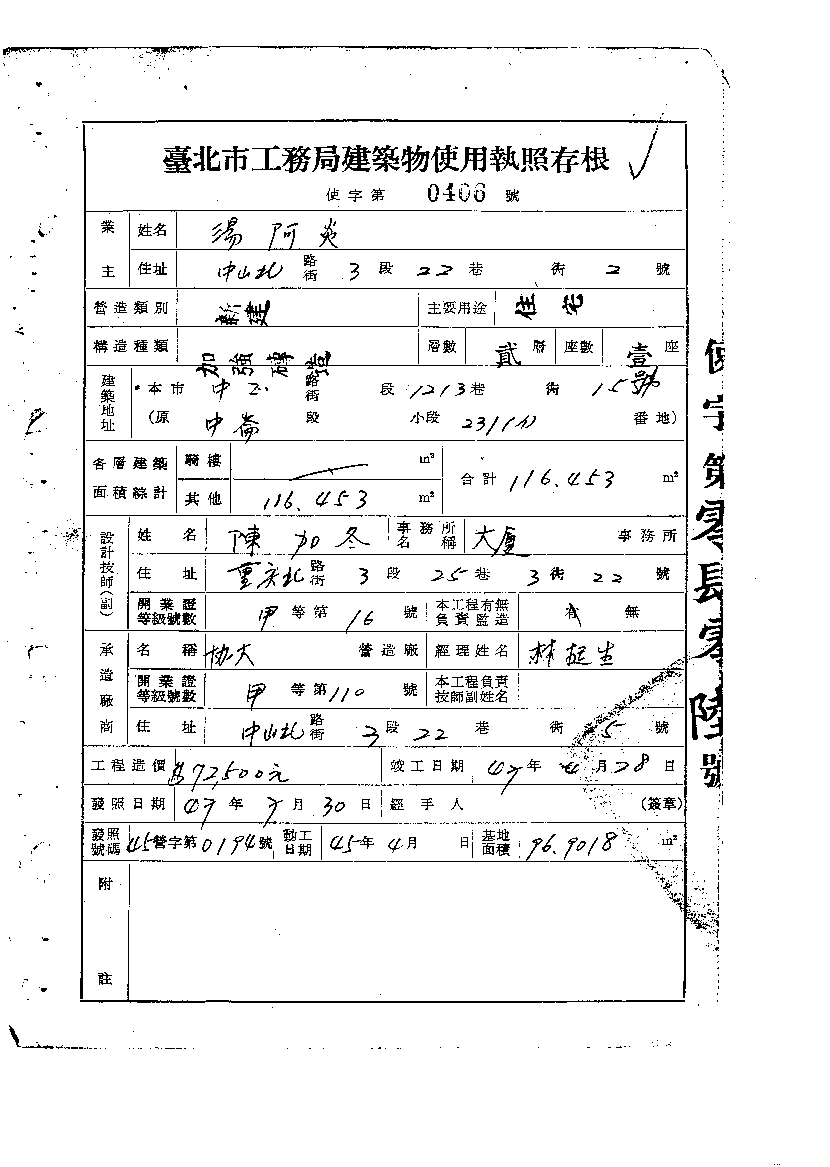 臺北市工務局建築物使用執照存根
使字第 0406 號
業主 姓名 湯阿炎
住址 中山北 路街 3 段 22 巷 街 2 號
營造類別 新建 主要用途 住宅
構造種類 加強磚造 層數 貳 層 座數 壹 座
建築地址 本市 中正 路街 段 1213 巷 街 15號
(原 中崙 段 小段 231 番地)
各層建築面積綜計 騎樓 m² 合計 116.453 m²
其他 116.453 m²
設計技師(副) 姓名 陳加冬 事務所名稱 大廈 事務所
住址 重慶北 路街 3 段 25 巷 3 街 22 號
開業證等級號數 甲 等第 16 號 本工程有無負責監造 有 無
承造廠商 名稱 協大 營造廠 經理姓名 林挺生
開業證等級號數 甲 等第 110 號 本工程負責技師副姓名
住址 中山北 路街 3 段 22 巷 街 5 號
工程造價 $72,500元 竣工日期 年 4 月 28 日
發照日期 年 月 30 日 經手人 (簽章)
發照號碼 45營字第0194號 動工日期 45年4月 日 基地面積 96.9018 m²
附註
使字第零肆零陸號